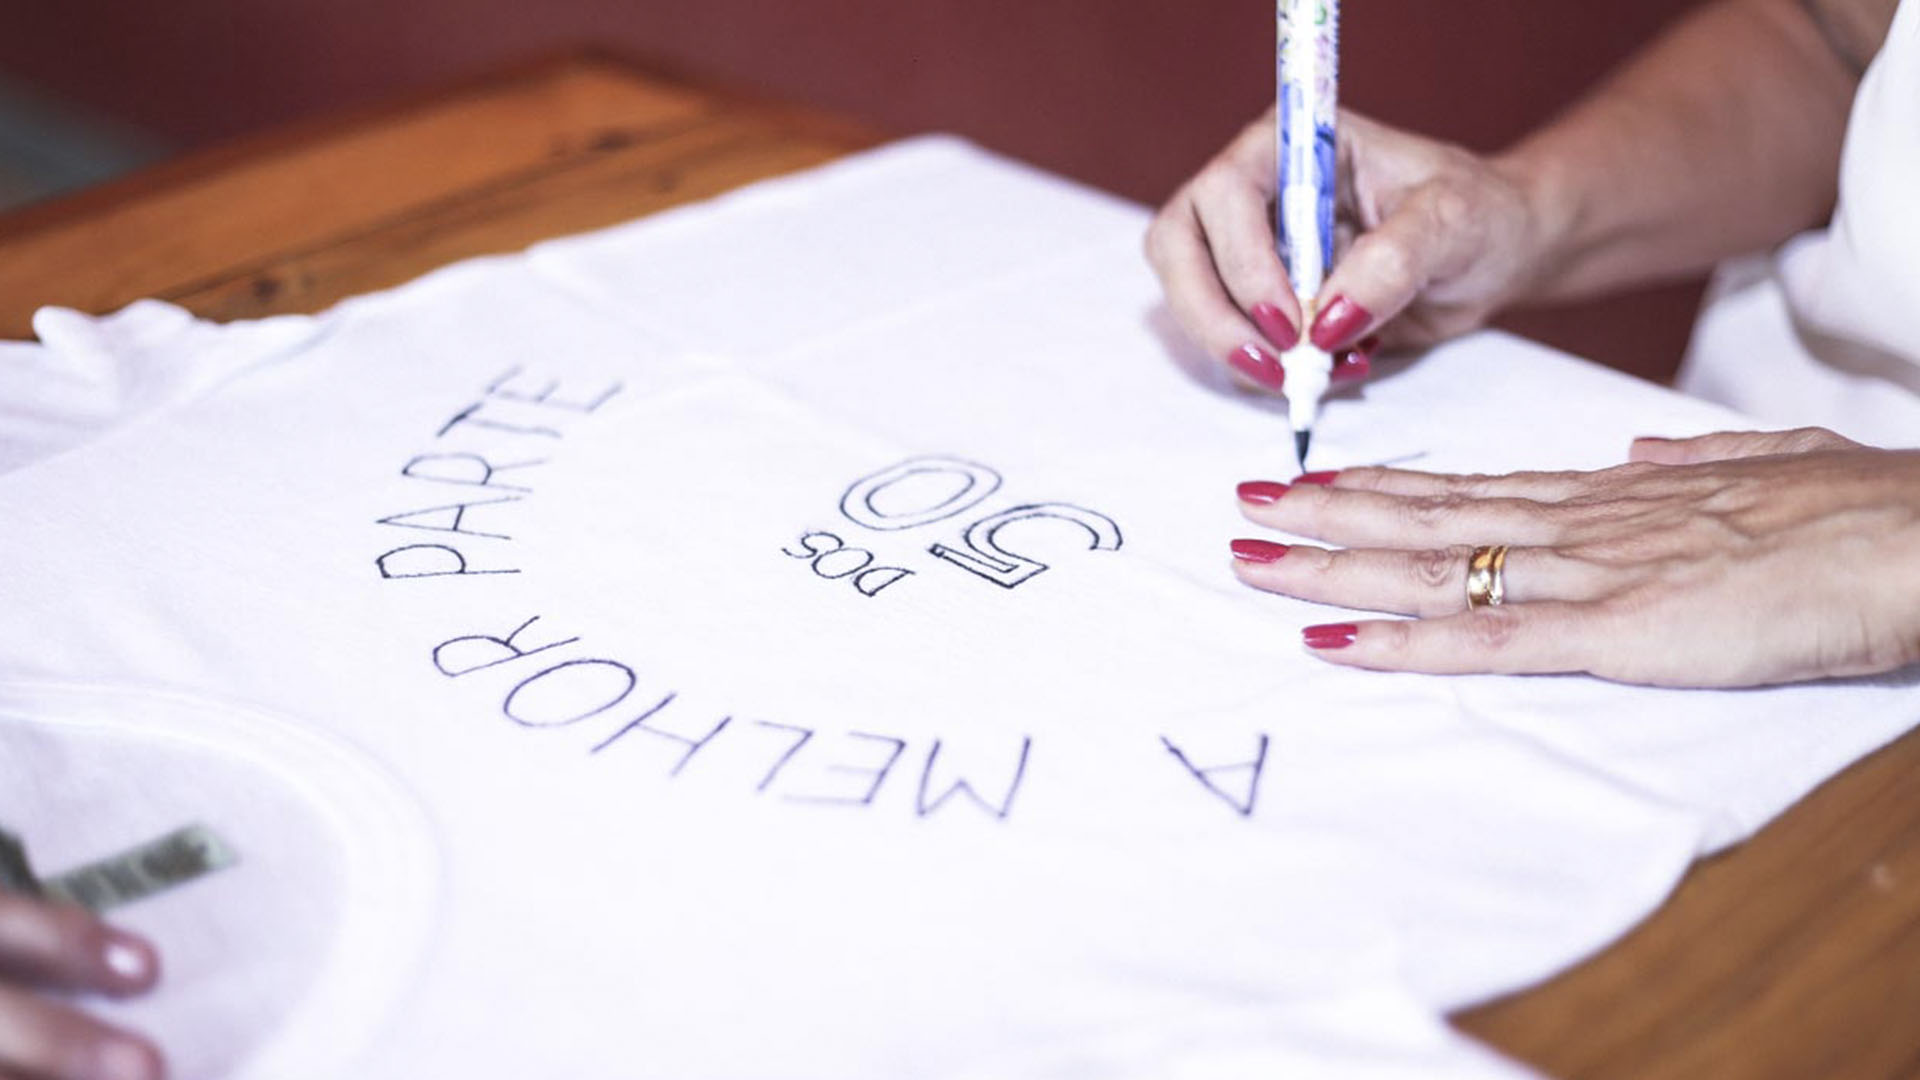 A MELHOR PARTE
DOS
50